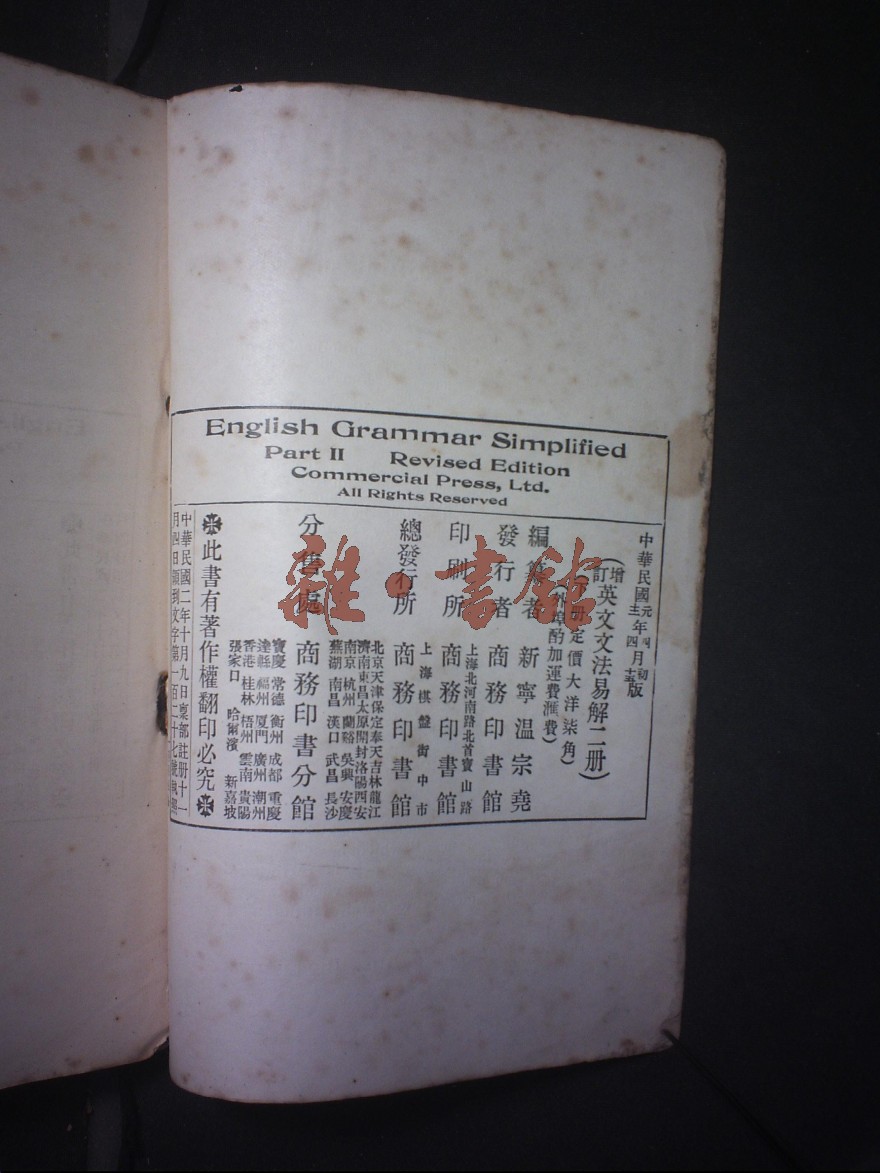 English Grammar Simplified
Part II Revised Edition
Commercial Press, Ltd.
All Rights Reserved
中華民國元年四月初版
四月
(增訂英文文法易解二册)
定價大洋柒角
外埠酌加運費滙費)
編纂者 新寧溫宗堯
發行者 商務印書館
上海北河南路北首寶山路
印刷所 商務印書館
上海棋盤街中市
總發行所 商務印書館
北京天津保定奉天吉林龍江
濟南東昌太原開封洛陽西安
南京杭州蘭谿吳興安慶
蕪湖南昌漢口武昌長沙
分售處 商務印書分館
寶慶常德衡州成都重慶
達縣福州厦門廣州潮州
香港桂林梧州雲南貴陽
張家口 哈爾濱 新嘉坡
此書有著作權翻印必究
中華民國二年十月九日稟部註册十一
月四日領到文字第一百二十七號執照
雜·書館